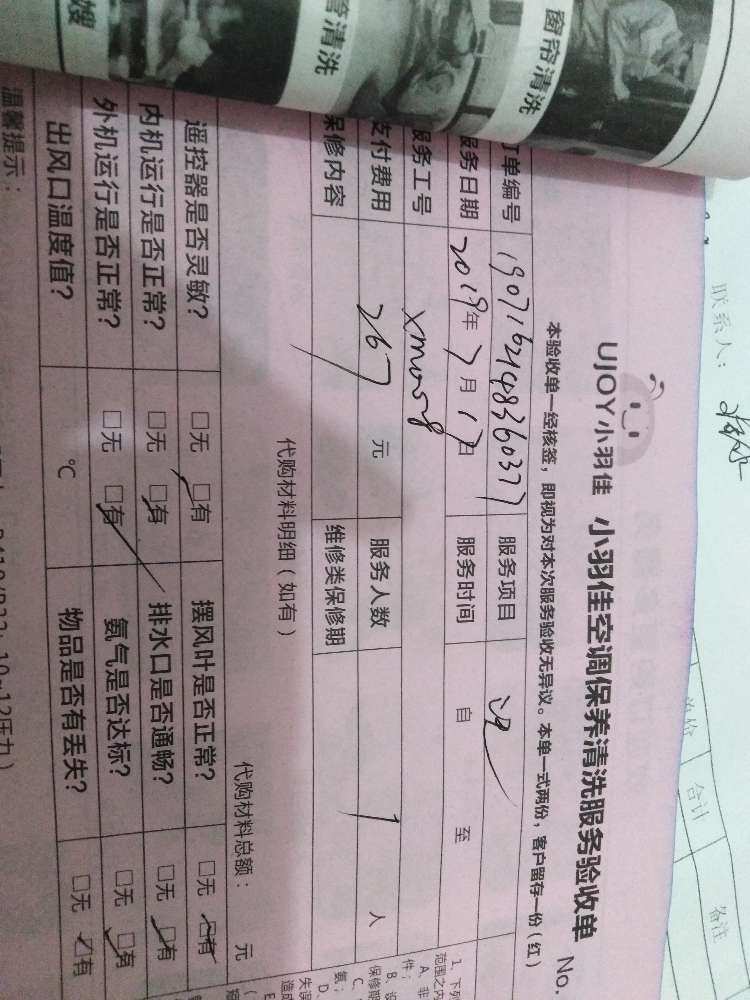 窗帘清洗
管清洗
嫂
联系人：
单价 合计 备注
UJOY小羽佳 小羽佳空调保养清洗服务验收单 No.
本验收单一经核签，即视为对本次服务验收无异议。本单一式两份，客户留存一份（红）
订单编号 190716214836037 服务项目
服务日期 2019年7月17日 服务时间 自 至
服务工号 xm0058
支付费用 267 元 服务人数 1 人
保修内容 维修类保修期
代购材料明细（如有） 代购材料总额： 元
遥控器是否灵敏？ □无 □有 摆风叶是否正常？ □无 □有
内机运行是否正常？ □无 □有 排水口是否通畅？ □无 □有
外机运行是否正常？ □无 □有 氨气是否达标？ □无 □有
出风口温度值？ ℃ 物品是否有丢失？ □无 □有
温馨提示：
R410/R32：10~12压力）
1、下列
范围之内
A、非
件；
保修期